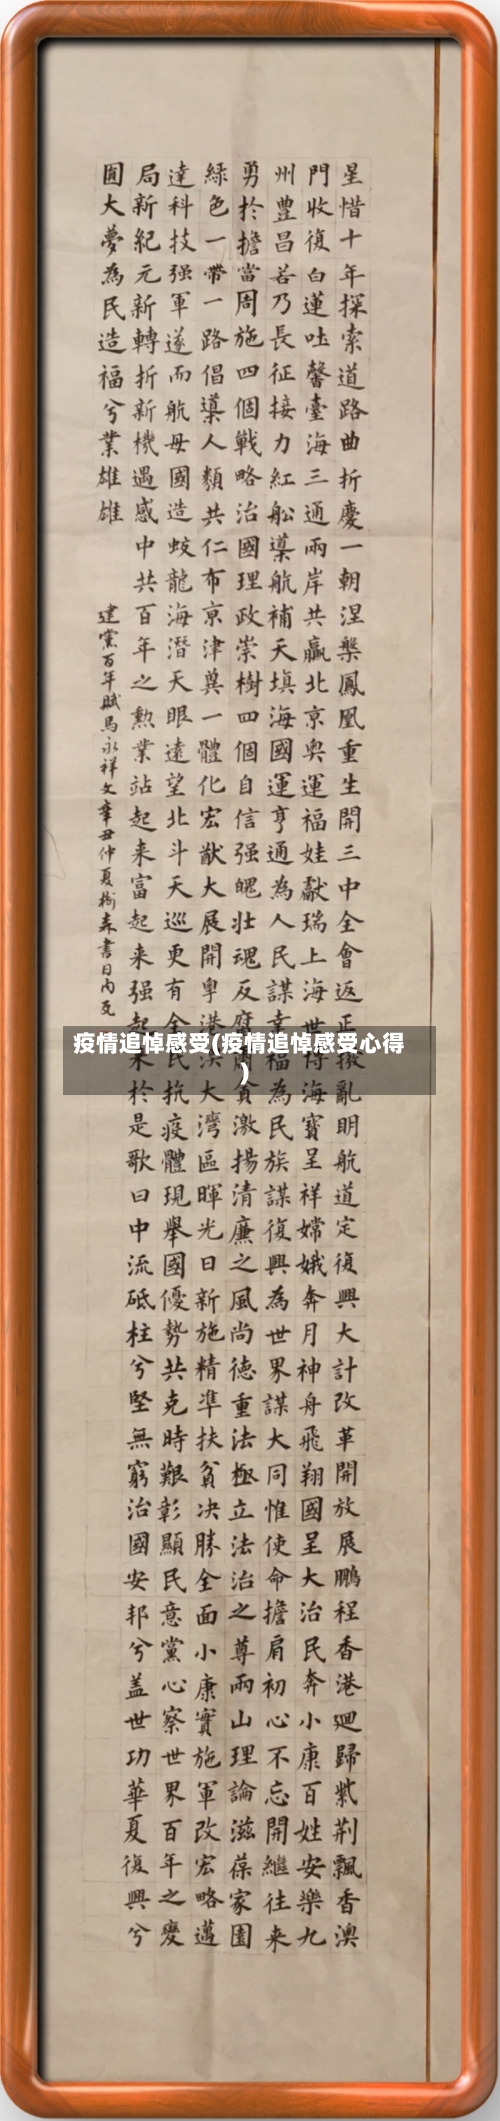 星惜十年探索道路曲折慶一朝涅槃鳳凰重生開三中全會返正撥亂明航道定復興大計改革開放展鵬程香港迴歸紫荆飄香澳
門收復白蓮吐馨臺海三通兩岸共贏北京奥運福娃獻瑞上海世博海寶呈祥嫦娥奔月神舟飛翔國呈大治民奔小康百姓安樂九
州豊昌若乃長征接力紅船導航補天填海國運亨通為人民謀幸福為民族謀復興為世界謀大同惟使命擔肩初心不忘開繼往来
勇於擔當周施四個戰略治國理政崇樹四個自信强魄壯魂反腐 貪激揚清廉之風尚德重法極立法治之尊兩山理論滋葆家園
緑色一帶一路倡導人類共仁布京津冀一體化宏猷大展開粤港澳大灣區暉光日新施精準扶貧决勝全面小康實施軍改宏略邁
達科技强軍遂而航母國造蛟龍海潛天眼遠望北斗天巡更有全民抗疫體現舉國優勢共克時艱彰顯民意黨心察世界百年之變
局新紀元新轉折新機遇感中共百年之勲業站起来富起来强起来於是歌曰中流砥柱兮堅無窮治國安邦兮盖世功華夏復興兮
圓大夢為民造福兮業雄雄
建黨百年賦馬永祥文辛丑仲夏 森書日内瓦
疫情追悼感受(疫情追悼感受心得
)